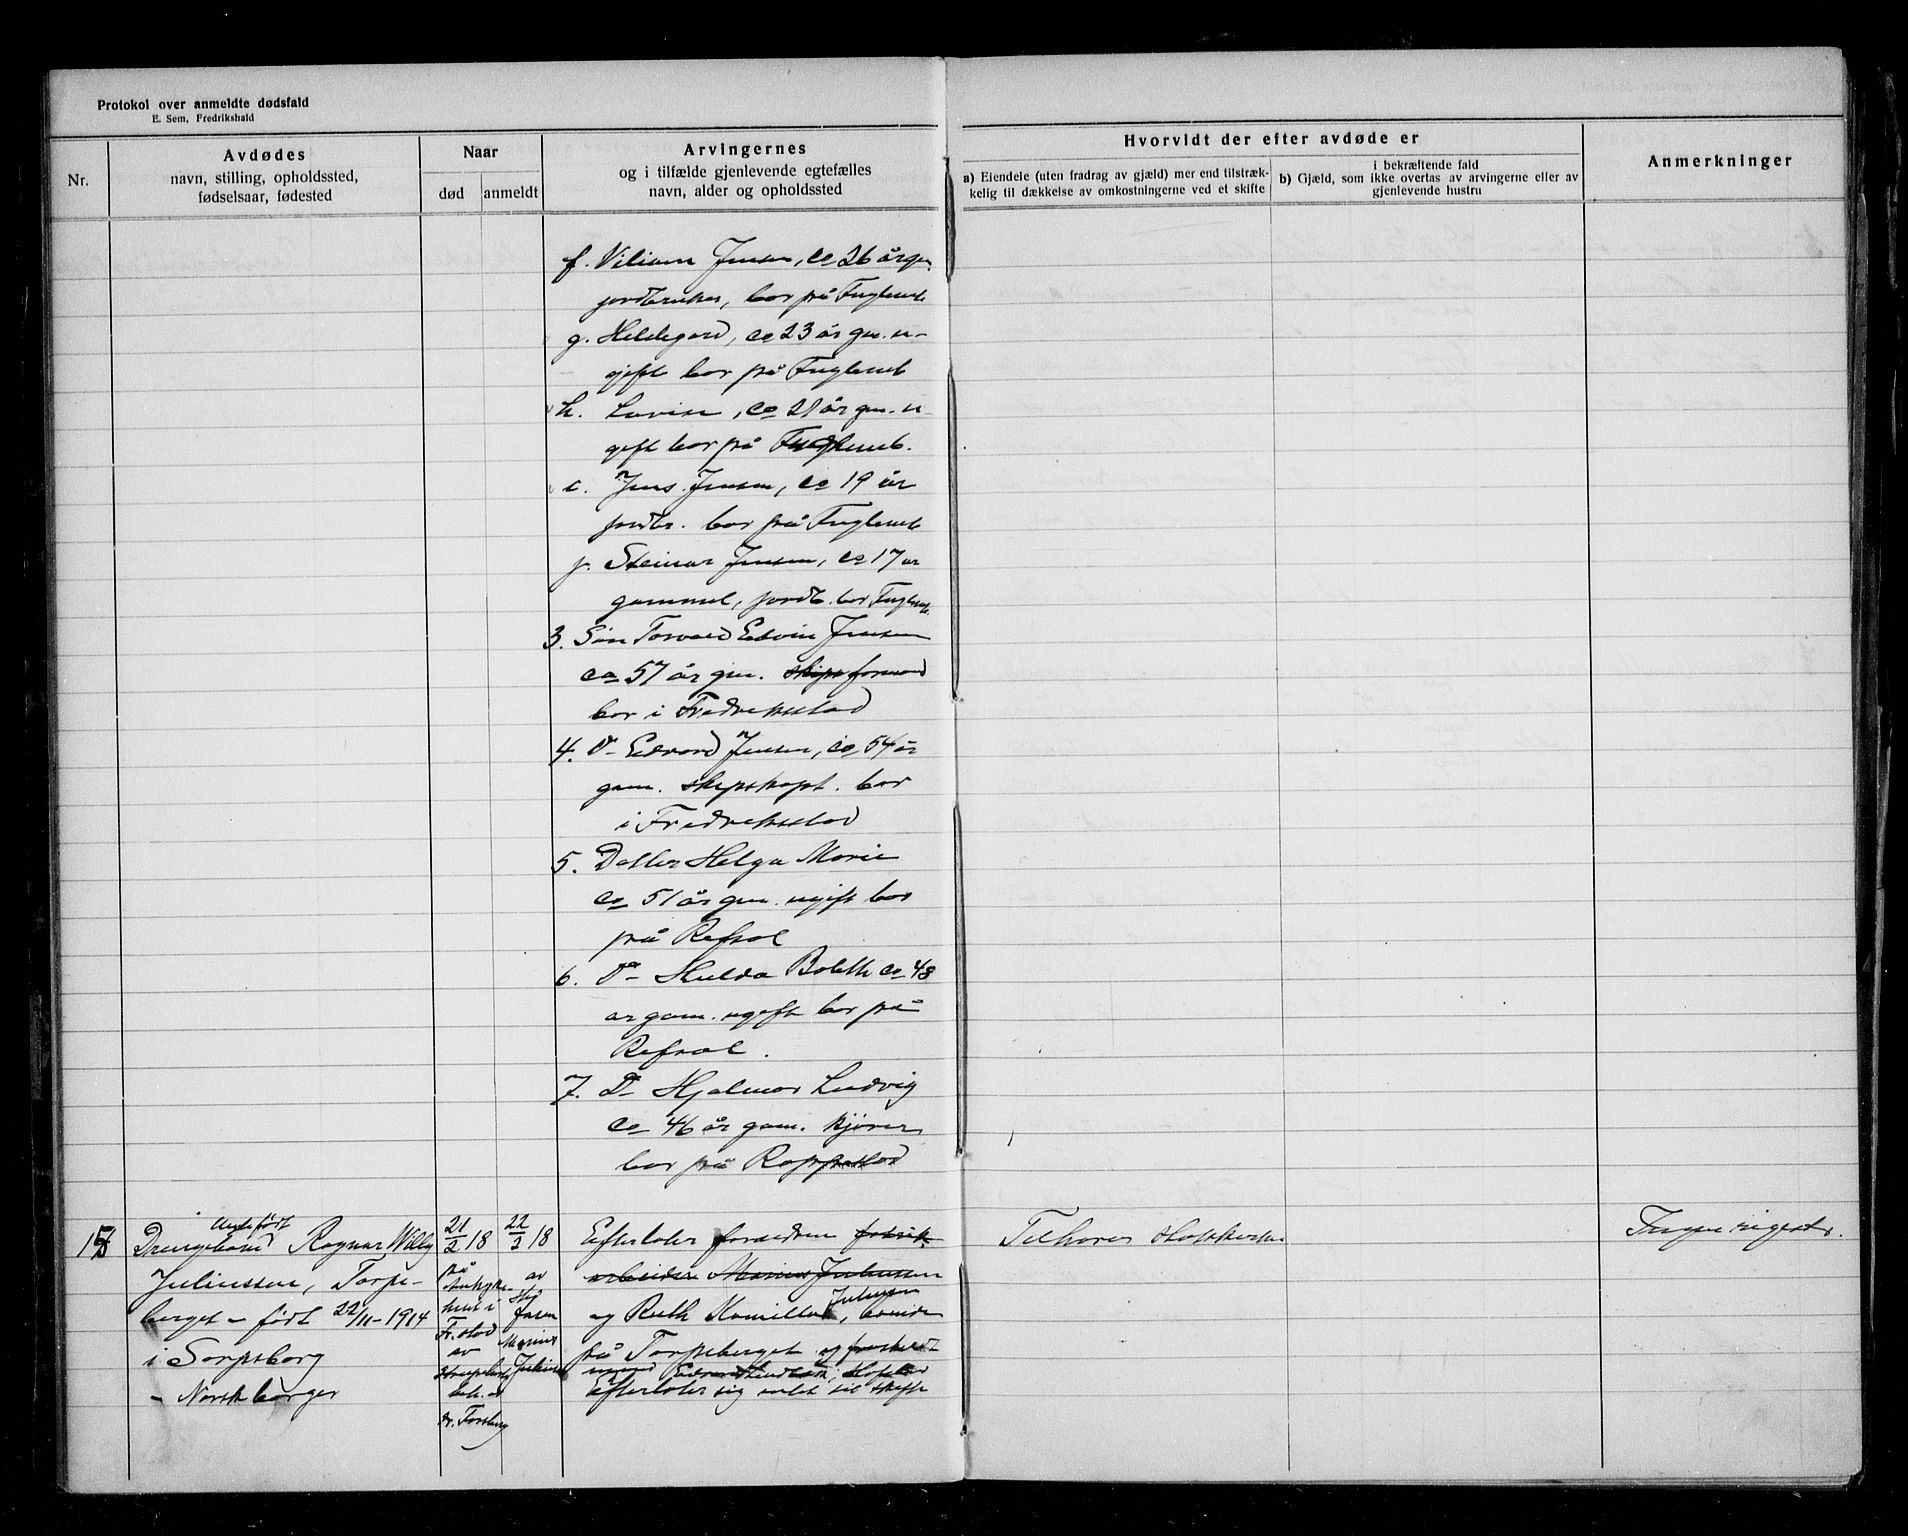 Protokol over anmeldte dødsfald
E. Sem, Fredrikshald
Nr.
Avdødes
navn, stilling, opholdssted,
fødselsaar, fødested
Naar
død
anmeldt
Arvingernes
og i tilfælde gjenlevende egtefælles
navn, alder og opholdssted
Hvorvidt der efter avdøde er
a) Eiendele (uten fradrag av gjæld) mer end tilstræk-
kelig til dækkelse av omkostningerne ved et skifte
i bekræftende fald
b) Gjæld, som ikke overtas av arvingerne eller av
gjenlevende hustru
Anmerkninger
f. Viliam Jensen, ca 26 år gm.
jordbruker, bor på Fugleneb
g. Hildegard, ca 23 år gm. u-
gift bor på Fugleneb
h. Lovise, ca 21 år gm. u
gift bor på Fugleneb.
i. Jens Jensen, ca 19 år
jordbr. bor på Fugleneb
j. Steinar Jensen, ca 17 år
gammel, jordb. bor Fugleneb.
3. Søn Torvald Edvin Jensen
ca 57 år gm. skipsformand
bor i Fredrikstad
4. Do Edvard Jensen, ca 54 år
gam. skipskapt. bor
i Fredrikstad
5. Datter Helga Marie
ca 51 år gm. ugift bor
på Refsal
6. Do Hulda Boleth ca 48
år gam. ugift bor på
Refsal.
7. Do Hjalmar Ludvig
ca 46 år gam. kjører
bor på Roppestad
Drengebarn Ragnar Willy
Juliussen, Torpe-
berget - født 22/11-1914
i Sarpsborg
- Norsk borger
21/2 18
på
i
F.stad
av
dr. Forsberg
22/2 18
av
faren
Marius
Efterlater forældrene fabrik-
arbeider Marius Juliussen
og Ruth Kamilla Juliussen, boende
på Torpeberget
Efterlater sig intet til skifte
Tilhører statskirken
Ingen